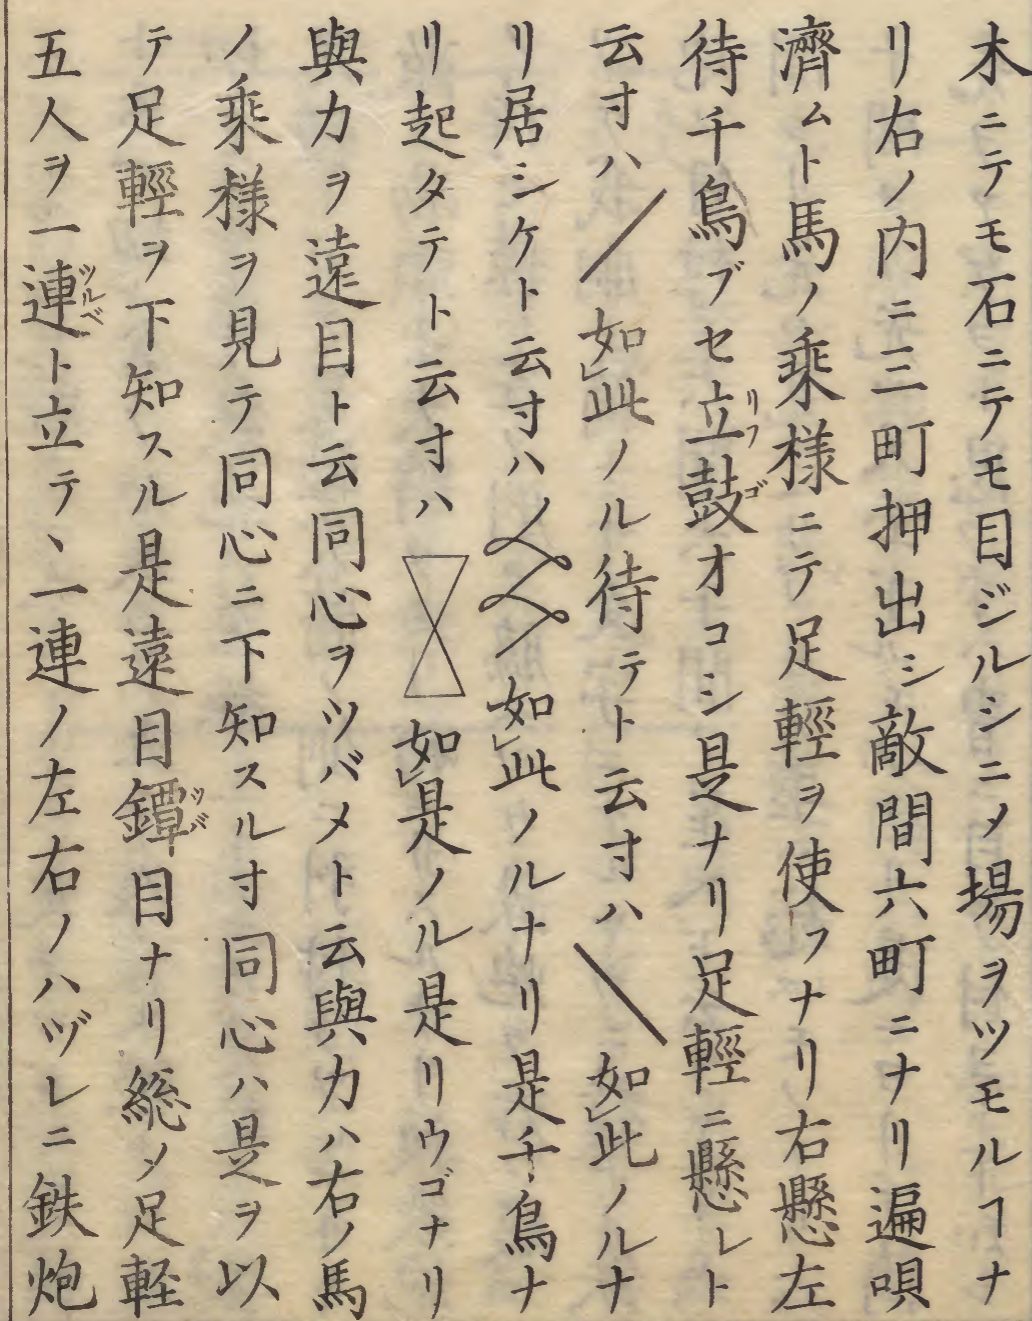 木ニテモ石ニテモ目ジルシニメ場ヲツモルヿナ
リ右ノ内ニ三町押出シ敵間六町ニナリ遍唄
濟ムト馬ノ乘様ニテ足輕ヲ使フナリ右懸左
待千鳥ブセ立鼓リフゴオコシ是ナリ足輕ニ懸レト
云寸ハ如レ此ノル待テト云寸ハ如レ此ノルナ
リ居シケト云寸ハ如レ此ノルナリ是千鳥ナ
リ起タテト云寸ハ如レ是ノル是リウゴナリ
與力ヲ遠目ト云同心ヲツバメト云與力ハ右ノ馬
ノ乘様ヲ見テ同心ニ下知スル寸同心ハ是ヲ以
テ足輕ヲ下知スル是遠目鐔ツバ目ナリ総メ足軽
五人ヲ一連ツルベト立テ、一連ノ左右ノハヅレニ鉄炮